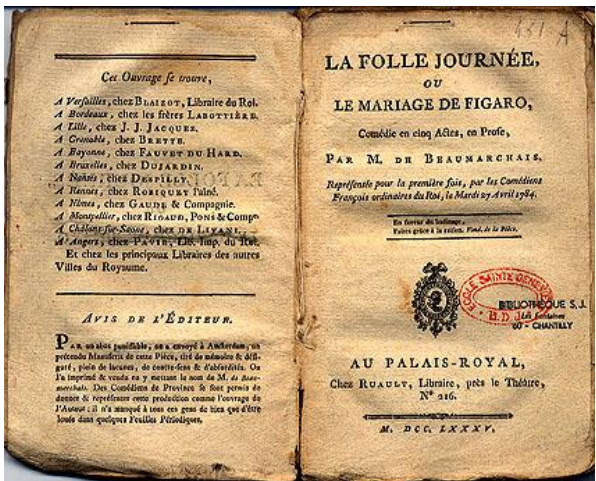 Cet Ouvrage se trouve,
A Versailles, chez BLAIZOT, Libraire du Roi.
A Bordeaux, chez les frères LABOTTIÈRE.
A Lille, chez J. J. JACQUEZ.
A Grenoble, chez BRETTE.
A Bayonne, chez FAUVET DU HARD.
A Bruxelles, chez DUJARDIN.
A Nantes, chez DESPILLY.
A Rennes, chez ROBIQUET l'aîné.
A Nîmes, chez GAUDE & Compagnie.
A Montpellier, chez RIGAUD, PONS & Compe
A Châlons-sur-Saone, chez DE LIVANI.
A Angers, chez PAVIE, Lib. Imp. du Roi.
Et chez les principaux Libraires des autres
Villes du Royaume.
AVIS DE L'ÉDITEUR.
PAR un abus punissable, on a envoyé à Amsterdam, un
prétendu Manuscrit de cette Pièce, tiré de mémoire & défi-
guré, plein de lacunes, de contre-sens & d'absurdités. On
l'a imprimé & vendu en y mettant le nom de M. de Beau-
marchais. Des Comédiens de Province se sont permis de
donner & représenter cette production comme l'ouvrage de
l'Auteur; il n'a manqué à tous ces gens de bien que d'être
loués dans quelques Feuilles Périodiques.
451-A
LA FOLLE JOURNÉE,
OU
LE MARIAGE DE FIGARO,
Comédie en cinq Actes, en Prose,
PAR M. DE BEAUMARCHAIS.
Représentée pour la première fois, par les Comédiens
François ordinaires du Roi, le Mardi 27 Avril 1784.
En faveur du badinage,
Faites grâce à la raison. Vaud. de la Pièce.
ECOLE SAINTE GENEVIEVE
B.D.J.
BIBLIOTHEQUE S.J.
Les Fontaines
60 - CHANTILLY
AU PALAIS-ROYAL,
Chez RUAULT, Libraire, près le Théâtre,
N° 216.
M. DCC. LXXXV.